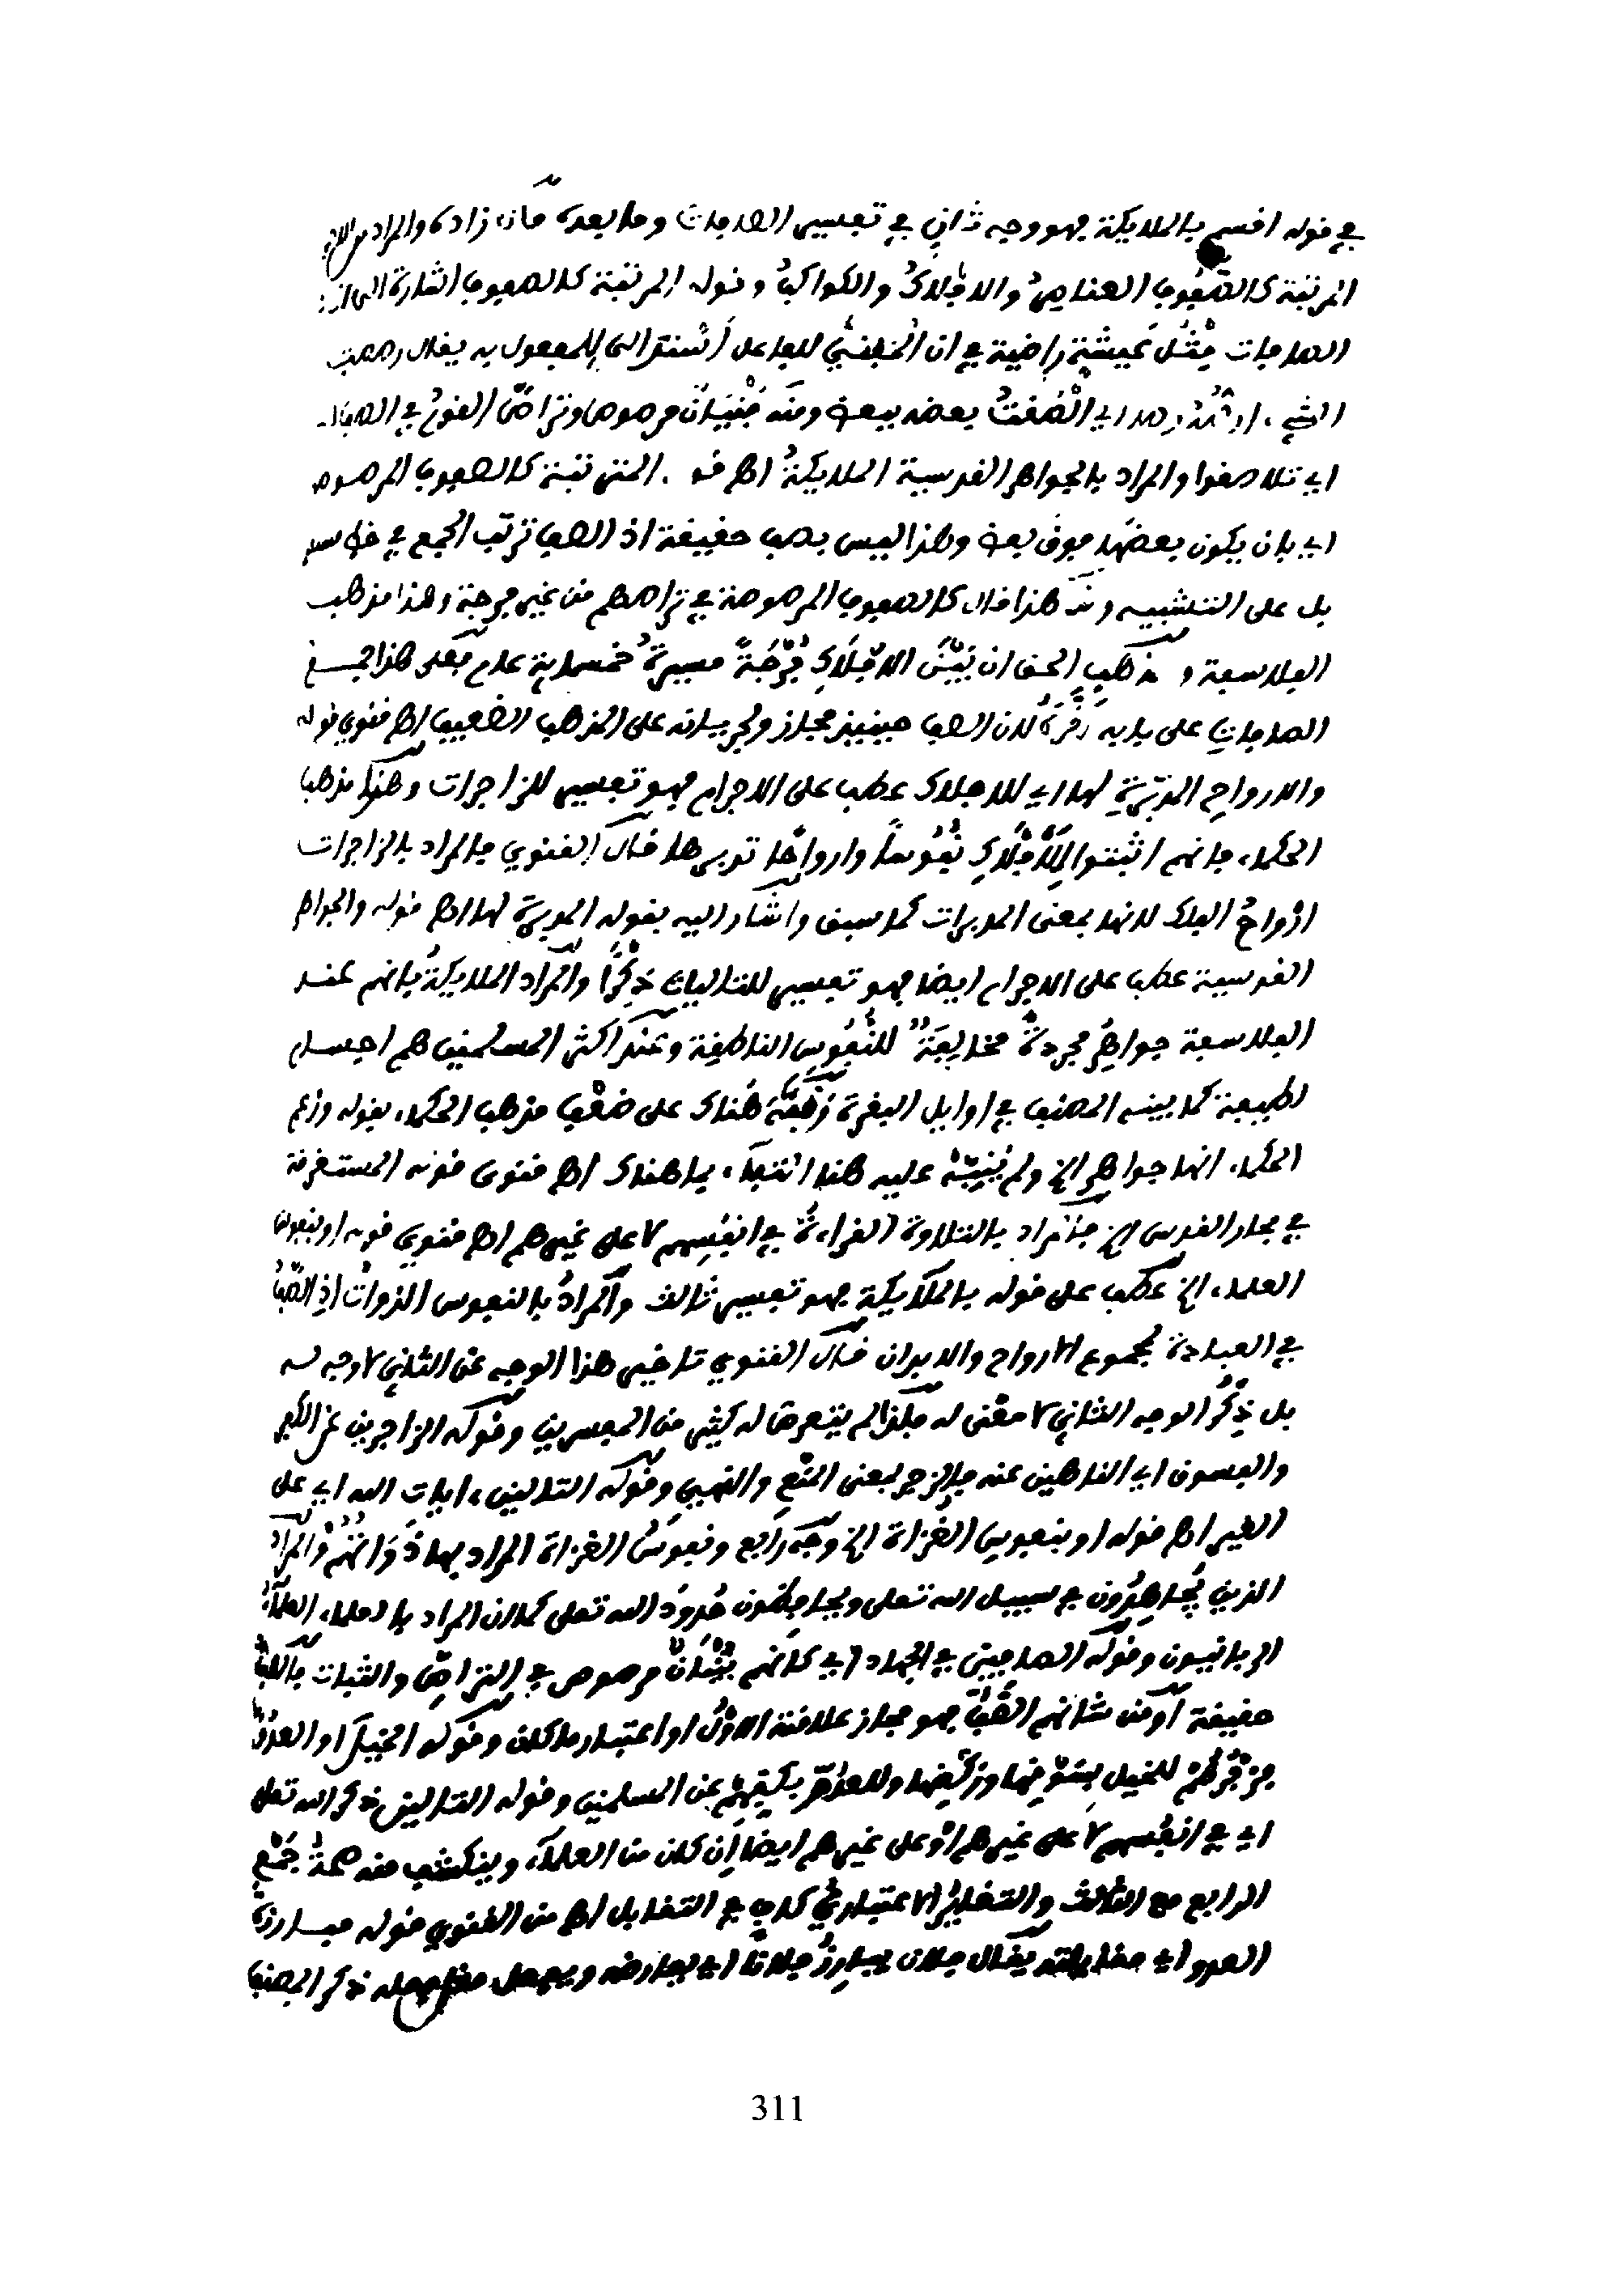 في قوله اقسم بالملايكة فهو وجه ثان في تفسير الصافات وما بعده قاله زاده والمراد
المرتبة كالصفوف العناصر والافلاك والكواكب وقوله المرتبة كالصفوف اشارة الى ان
الصافات مثل عيشة راضية في ان للفاعل اسند الى المفعول به يقال رصصت
الشيء رصا اي الصقت بعضه ببعض ومنه بنيان مرصوص وتراص القوم في الصف
اي تلاصقوا والمراد بالجواهر القدسية الملايكة اهـ قو المترتبة كالصفوف المرصوصة
اي بان يكون بعضها فوق بعض وهذا ليس بصف حقيقة اذ الصف ترتب الجمع في خط
بل على التشبيه وعن هذا قال كالصفوف المرصوصة في تراصهم من غير فرجة وهذا مذهب
الفلاسفة ومذهب الحق ان بين الافلاك فرجة مسيرة خمسماية عام فعلى هذا جمع
الصافات على بابه لان الصف حينيذ مجاز ولجريانه على المذهب الضعيف اهـ قنوي قوله
والارواح المدبرة لها اي للافلاك عطف على الاجرام فهو تفسير للزاجرات وهذا مذهب
الحكماء فانهم اثبتوا للافلاك نفوسا وارواحا تدبرها قال القنوي فالمراد بالزاجرات
ارواح الفلك لانها بمعنى المدبرات كما سبق واشار اليه بقوله المدبرة لها اهـ قوله والجواهر
القدسية عطف على الاجرام ايضا فهو تفسير للتاليات ذكرا والمراد الملايكة فانهم عند
الفلاسفة جواهر مجردة مخالفة للنفوس الناطقة وعند اكثر المسلمين هم اجسام
لطيفة كما بينه المصنف في اوايل البقرة ونبه هناك على ضعف مذهب الحكماء بقوله وزعم
الحكماء انها جواهر الخ ولم ينبه عليه هنا اكتفاء بما هناك اهـ قنوي قوله المستغرقة
في بحار القدس الخ فالمراد بالتلاوة القراءة في انفسهم لا على غيرهم اهـ قنوي قوله او بنفوس
العلماء الخ عطف على قوله بالملايكة فهو تفسير ثالث والمراد بالنفوس الذوات اذ الصف
في العبادة لمجموع الارواح والابدان قال القنوي تاخير هذا الوجه عن الثاني لا وجه له
بل ذكر الوجه الثاني لا معنى له فلذا لم يتعرض له كثير من المفسرين وقوله الزاجرين عن الكفر
والفسوق اي الناهين عنه فالزجر بمعنى المنع والنهي وقوله التالين ايات الله اي على
الغير اهـ قوله او بنفوس الغزاة الخ وجه رابع ونفوس الغزاة المراد بها ذواتهم والمراد
الذين يجاهدون في سبيل الله تعلى ويحافظون حدود الله تعلى كما ان المراد بالعلماء العلماء
الربانيون وقوله الصافين في الجهاد اي كانهم بنيان مرصوص في التراص والثبات بالصف
حقيقة او من شانهم الصف فهو مجاز علاقته الاول او اعتبار ما كان وقوله الخيل او العدو
فزجرهم للخيل بسوقها وركضها وللعدو بكفهم عن المسلمين وقوله التالين ذكر الله تعلى
اي في انفسهم لا على غيرهم او على غيرهم ايضا ان كان من العلماء وينكشف منه صحة جمع
الرابع مع الثالث والتغاير الاعتباري كاف في التقابل اهـ من القنوي قوله مبارزة
العدو اي مقابلته يقال فلان يبارز فلانا اي يعارضه ويفعل مثل فعله ذكر المصنف
311